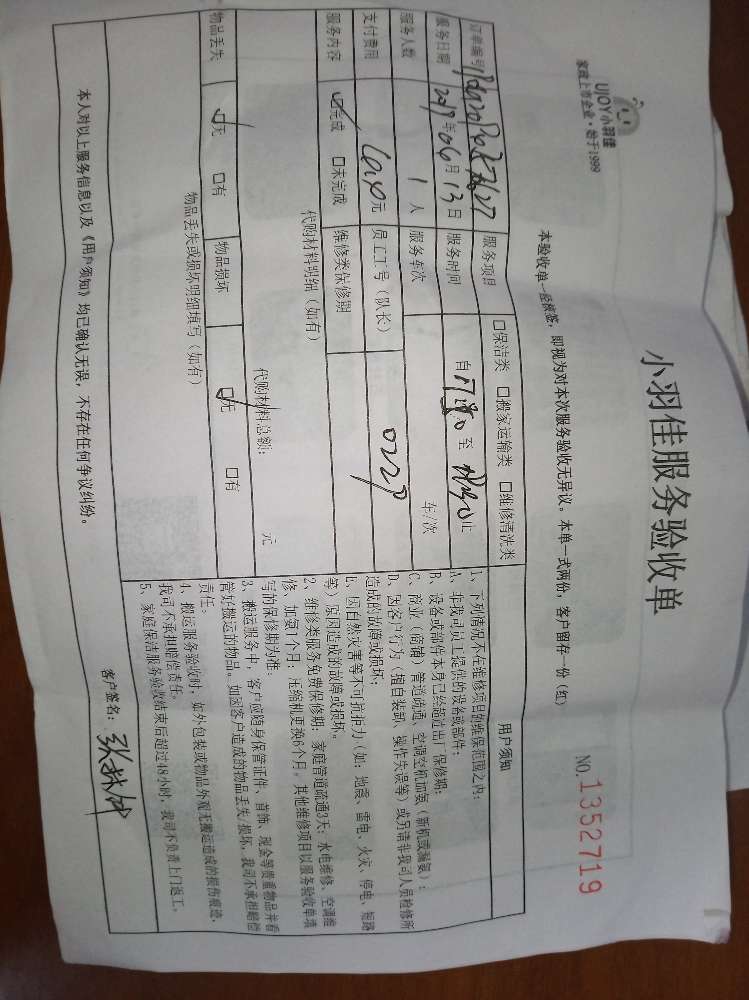 UJOY小羽佳
家政上市企业·始于1999
小羽佳服务验收单
NO.1352719
本验收单一经核签，即视为对本次服务验收无异议。本单一式两份，客户留存一份（红）
订单编号
服务项目 □保洁类 □搬家运输类 □维修清洗类
服务日期 2019年06月13日
服务时间 自 至 止
服务人数 1 人
服务车次 车/次
支付费用 元
员工工号（队长） 0229
服务内容 ☑完成 □未完成
维修类保修期
代购材料明细（如有）
代购材料总额： 元
物品丢失 ☑无 □有
物品损坏 ☑无 □有
物品丢失或损坏明细填写（如有）
用户须知
1、下列情况不在维修项目的维保范围之内：
A、非我司员工提供的设备或部件；
B、设备或部件本身已经超过出厂保修期；
C、商业（商铺）管道疏通、空调空机加氨（新机或漏氨）；
D、因客户行为（擅自装卸、操作失误等）或另请非我司人员检修所
造成的故障或损坏；
E、因自然灾害等不可抗拒力（如：地震、雷电、火灾、停电、短路
等）原因造成的故障或损坏。
2、维修类服务免费保修期：家庭管道疏通3天；水电维修、空调维
修、加氨1个月；压缩机更换6个月。其他维修项目以服务验收单填
写的保修期为准；
3、搬运服务中，客户应随身保管证件、首饰、现金等贵重物品并看
管好搬运的物品。如因客户造成的物品丢失/损坏，我司不承担赔偿
责任。
4、搬运服务验收时，如外包装或物品外观无搬运造成的损伤痕迹，
我司不承担赔偿责任。
5、家庭保洁服务验收结束后超过48小时，我司不负责上门返工。
本人对以上服务信息以及《用户须知》均已确认无误，不存在任何争议纠纷。
客户签名：